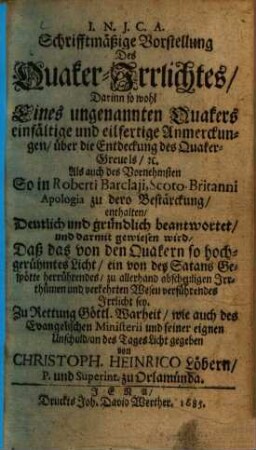 I. N. J. C. A.
Schrifftmäßige Vorstellung
Des
Quaker-Irrlichtes/
Darinn so wohl
Eines ungenannten Quakers
einfältige und eilfertige Anmerckun-
gen/ über die Entdeckung des Quaker-
Greuels/ ꝛc.
Als auch des Vornehmsten
So in Roberti Barclaji, Scoto-Britanni
Apologia zu dero Bestärckung/
enthalten/
Deutlich und gründlich beantwortet/
und darmit gewiesen wird/
Daß das von den Quakern so hoch-
gerühmtes Licht/ ein von des Satans Ge-
hötte herrührendes/ zu allerhand abscheiligen Irr-
thümen und verkehrten Wesen verführendes
Irrlicht sey.
Zu Rettung Göttl. Warheit/ wie auch des
Evangelischen Ministerii und seiner eignen
Unschuld/an des Tages Licht gegeben
von
CHRISTOPH. HEINRICO Löbern/
P. und Superint. zu Orlamünda.
JENA/
Druckts Joh. David Werther. 1685.